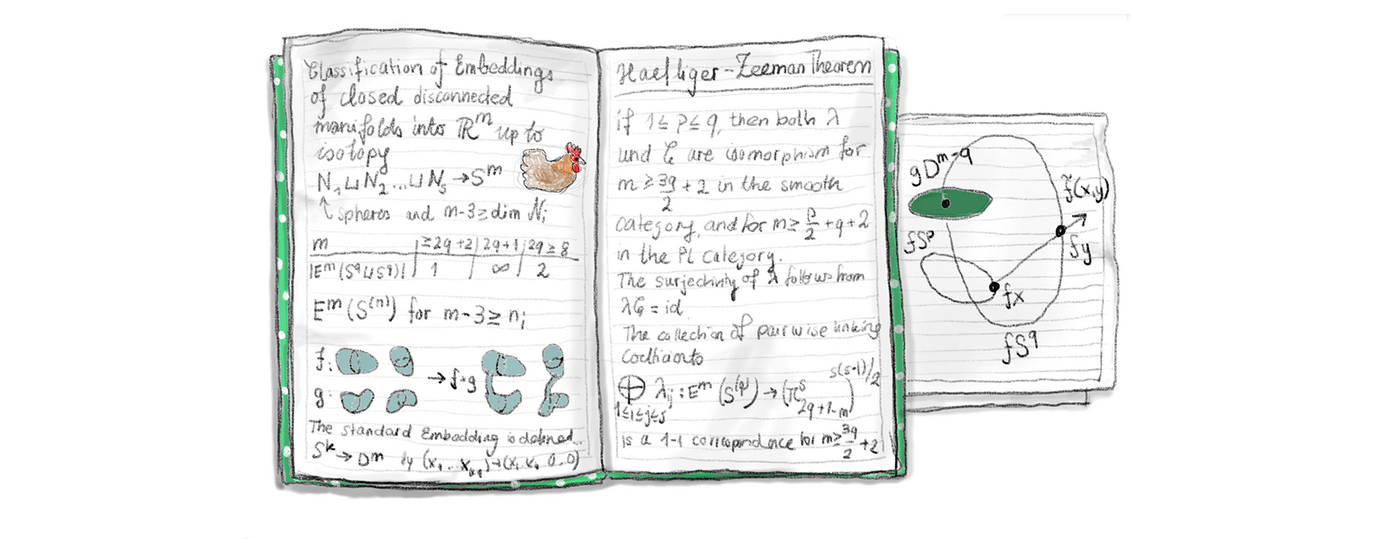 Classification of Embeddings
of closed disconnected
manifolds into ℝᵐ up to
isotopy
N₁⊔N₂...⊔Nₛ → Sᵐ
↑ spheres and m-3 ≥ dim Nᵢ
m | ≥2q+2 | 2q+1 | 2q ≥ 8
|Eᵐ(S^q⊔S^q)| | 1 | ∞ | 2
Eᵐ(S⁽ⁿ⁾) for m-3 ≥ nᵢ
f: → f+g
g:
The standard Embedding is defined..
Sᵏ → Dᵐ by
Haefliger-Zeeman Theorem
if 1 ≤ p ≤ q, then both λ
und ζ are isomorphism for
m ≥ 3q/2 + 2 in the smooth
category, and for m ≥ p/2 + q + 2
in the PL category.
The surjectivity of λ follows from
λζ = id
The collection of pairwise linking
⊕ λᵢⱼ : Eᵐ(S⁽q⁾) → (π^S_{2q+1-m})^{s(s-1)/2}
1≤i≤j≤s
is a 1-1 for m ≥ 3q/2 + 2
gD^{m-q}
f̃(x,y)
fSᵖ
fy
fx
fS^q